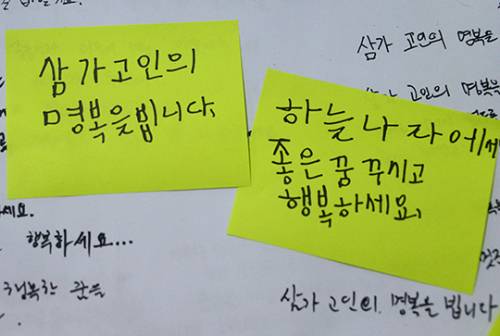 삼가 고인의 명복을
삼가 고인의 명복을
삼가고인의
명복을빕니다.
하늘나라에서
좋은 꿈 꾸시고
행복하세요.
세요.
행복하세요...
행복한
삼가 고인의 명복을 빕니다